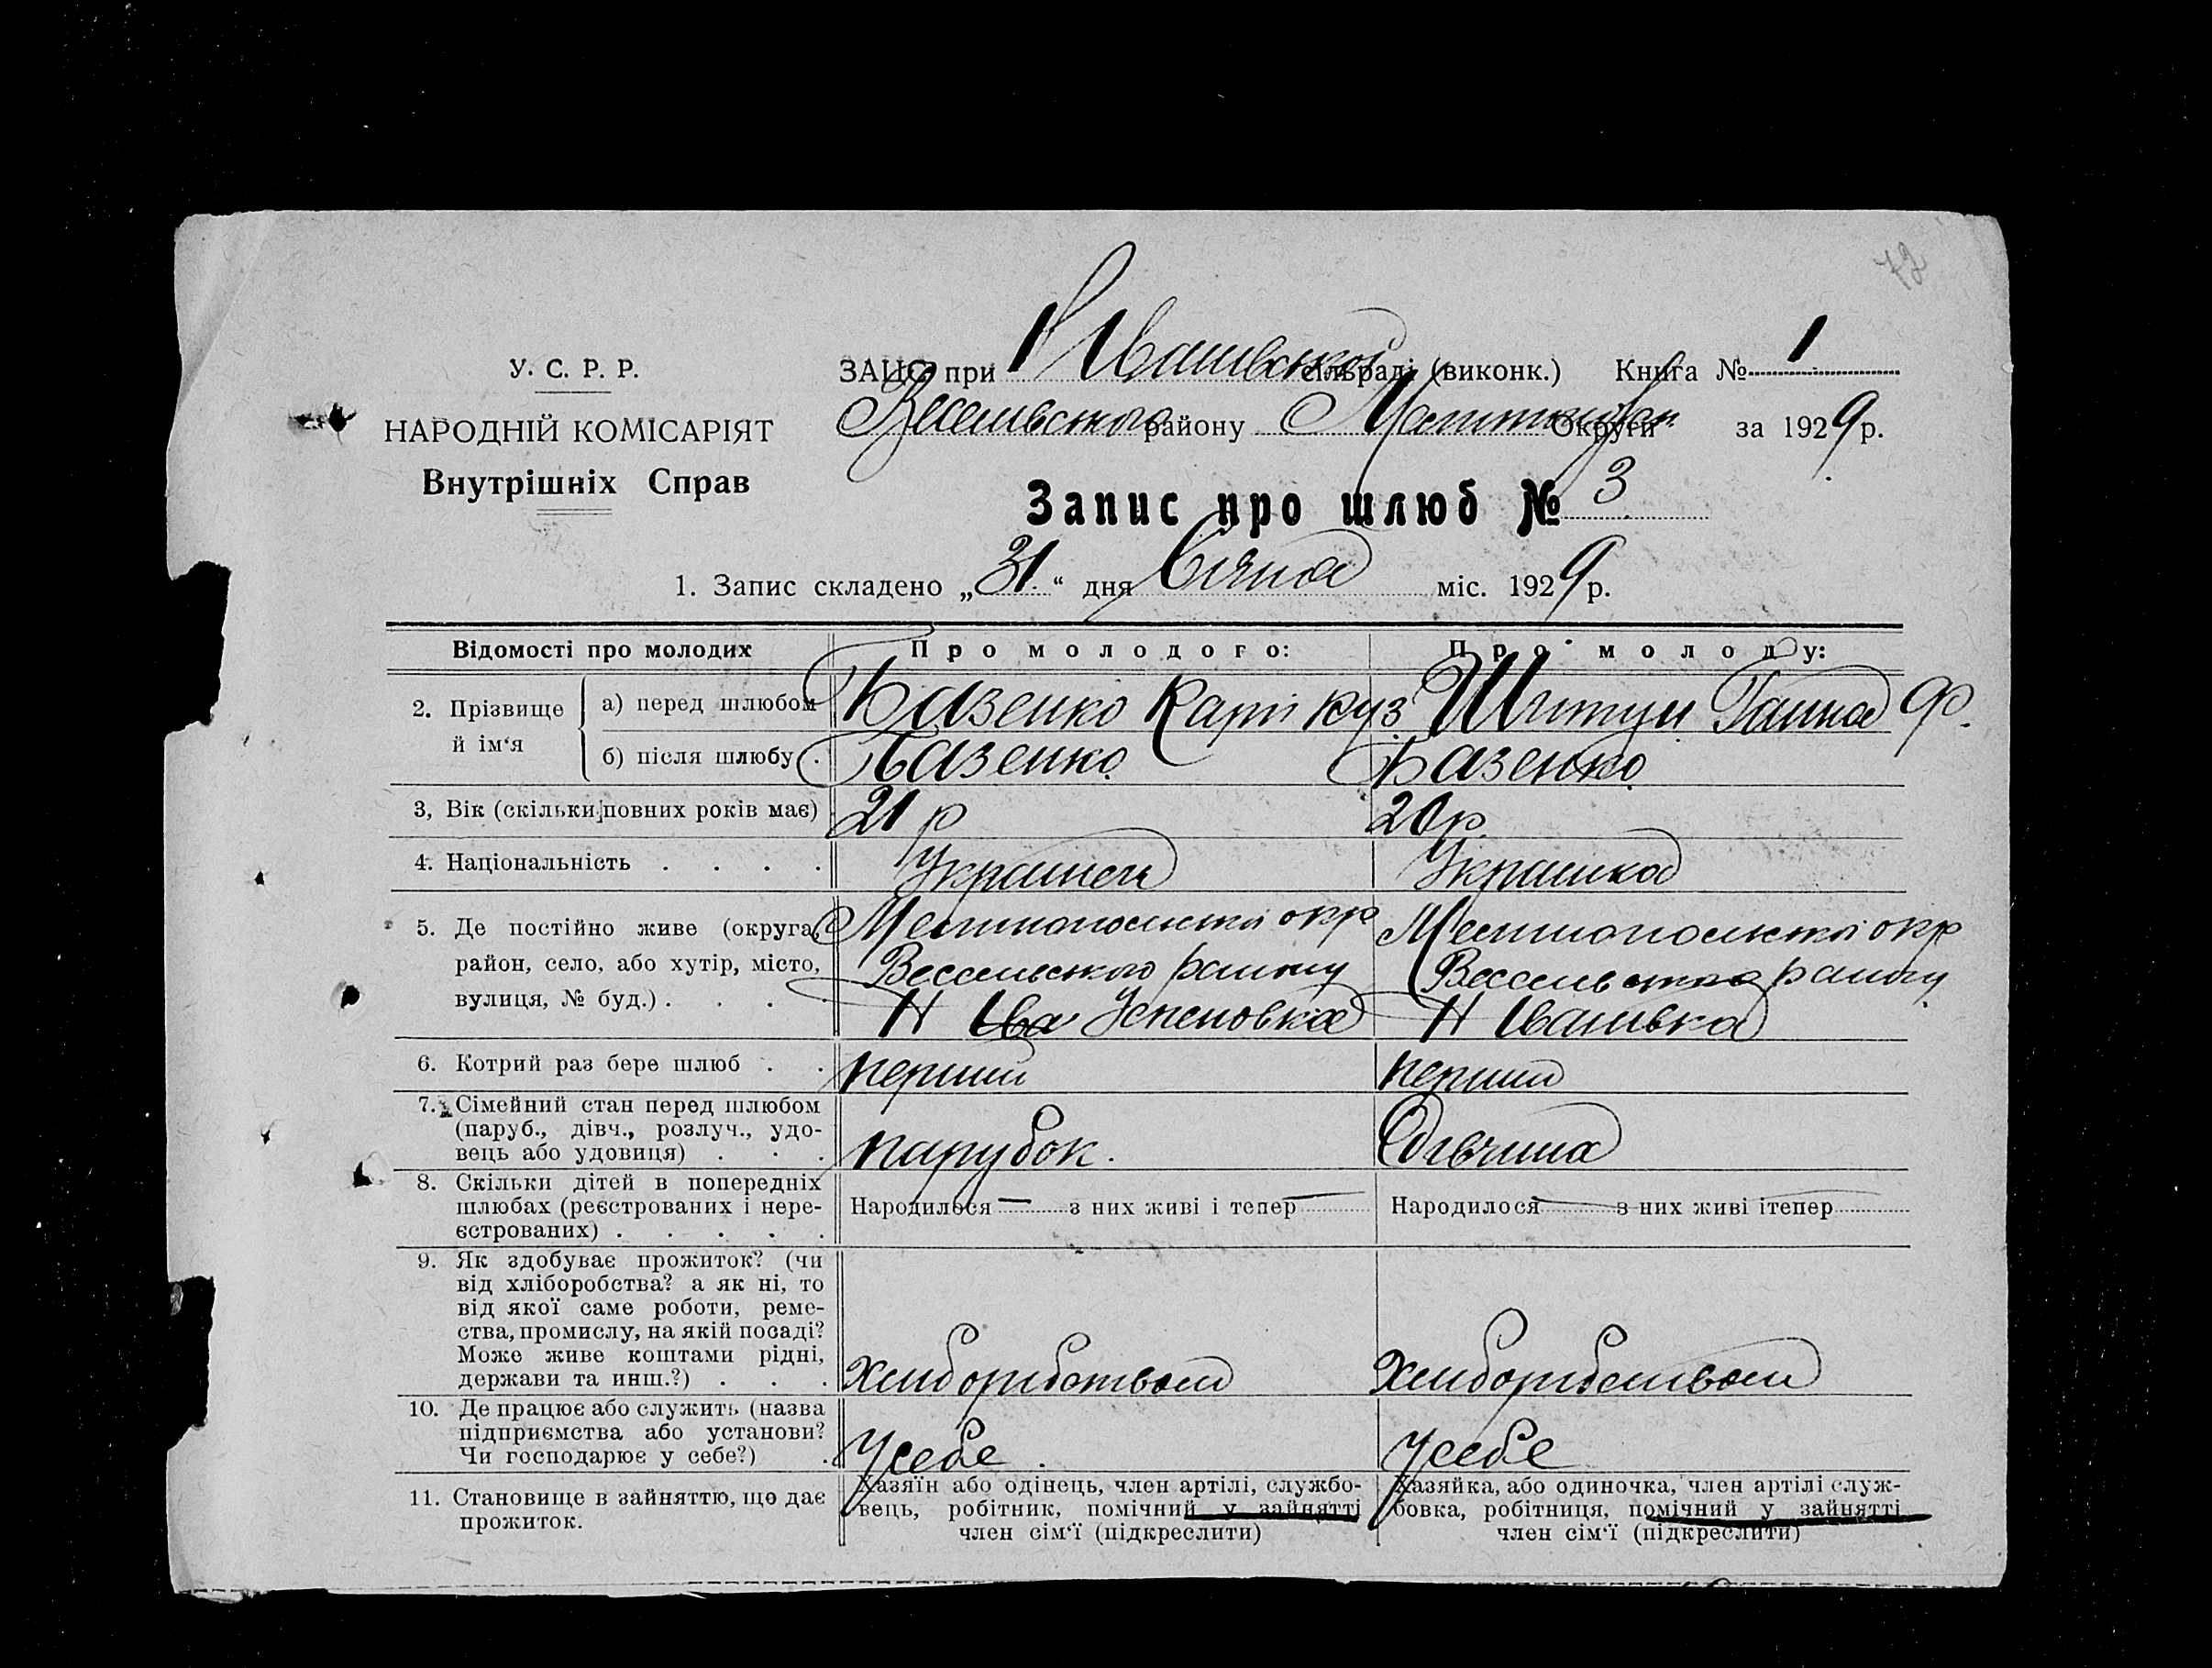 72
У. С. Р. Р.
НАРОДНІЙ КОМІСАРІЯТ
Внутрішніх Справ
ЗАЦС при Н Іванівської сільраді (виконк.) Книга № 1
Весельського району Мелітопільськ Округи за 1929 р.
Запис про шлюб № 3
1. Запис складено „31“ дня Січня міс. 1929 р.
Відомості про молодих Про молодого: Про молоду:
2. Прізвище й ім‘я а) перед шлюбом Базенко Карп Куз Ганна Ф.
б) після шлюбу . Базенко Базенко
3, Вік (скільки повних років має) 21 р 20 р.
4. Національність . . . . Українець Українка
5. Де постійно живе (округа, Мелітопольскої окр Мелітопольскої окр
район, село, або хутір, місто, Весельського району Весельського району
вулиця, № буд.) . . . . Н Ива Успеновка Н Іванівка
6. Котрий раз бере шлюб . . перший перший
7. Сімейний стан перед шлюбом
(паруб., дівч., розлуч., удо-
вець або удовиця) . . . парубок. Дівчина
8. Скільки дітей в попередніх
шлюбах (реєстрованих і нере- Народилося — з них живі і тепер — Народилося — з них живі ітепер
єстрованих) . . . . .
9. Як здобуває прожиток? (чи
від хліборобства? а як ні, то
від якої саме роботи, реме-
ства, промислу, на якій посаді?
Може живе коштами рідні,
держави та инш.?) . . . Хліборобством Хліборобством
10. Де працює або служить (назва
підприємства або установи?
Чи господарює у себе?) . У себе . У себе
11. Становище в зайняттю, що дає Хазяїн або одінець, член артілі, службо- Хазяйка, або одиночка, член артілі служ-
прожиток. вець, робітник, помічний у зайнятті бовка, робітниця, помічний у зайнятті
член сім‘ї (підкреслити) член сім‘ї (підкреслити)